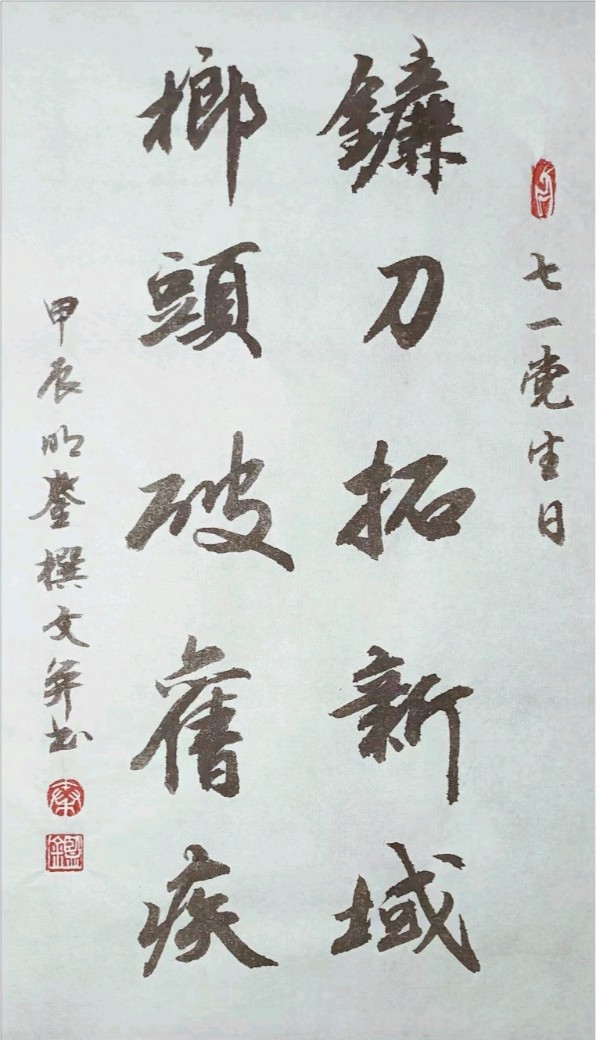 七一党生日
鐮刀拓新域
榔頭破舊疾
甲辰明鏊撰文并书
秦